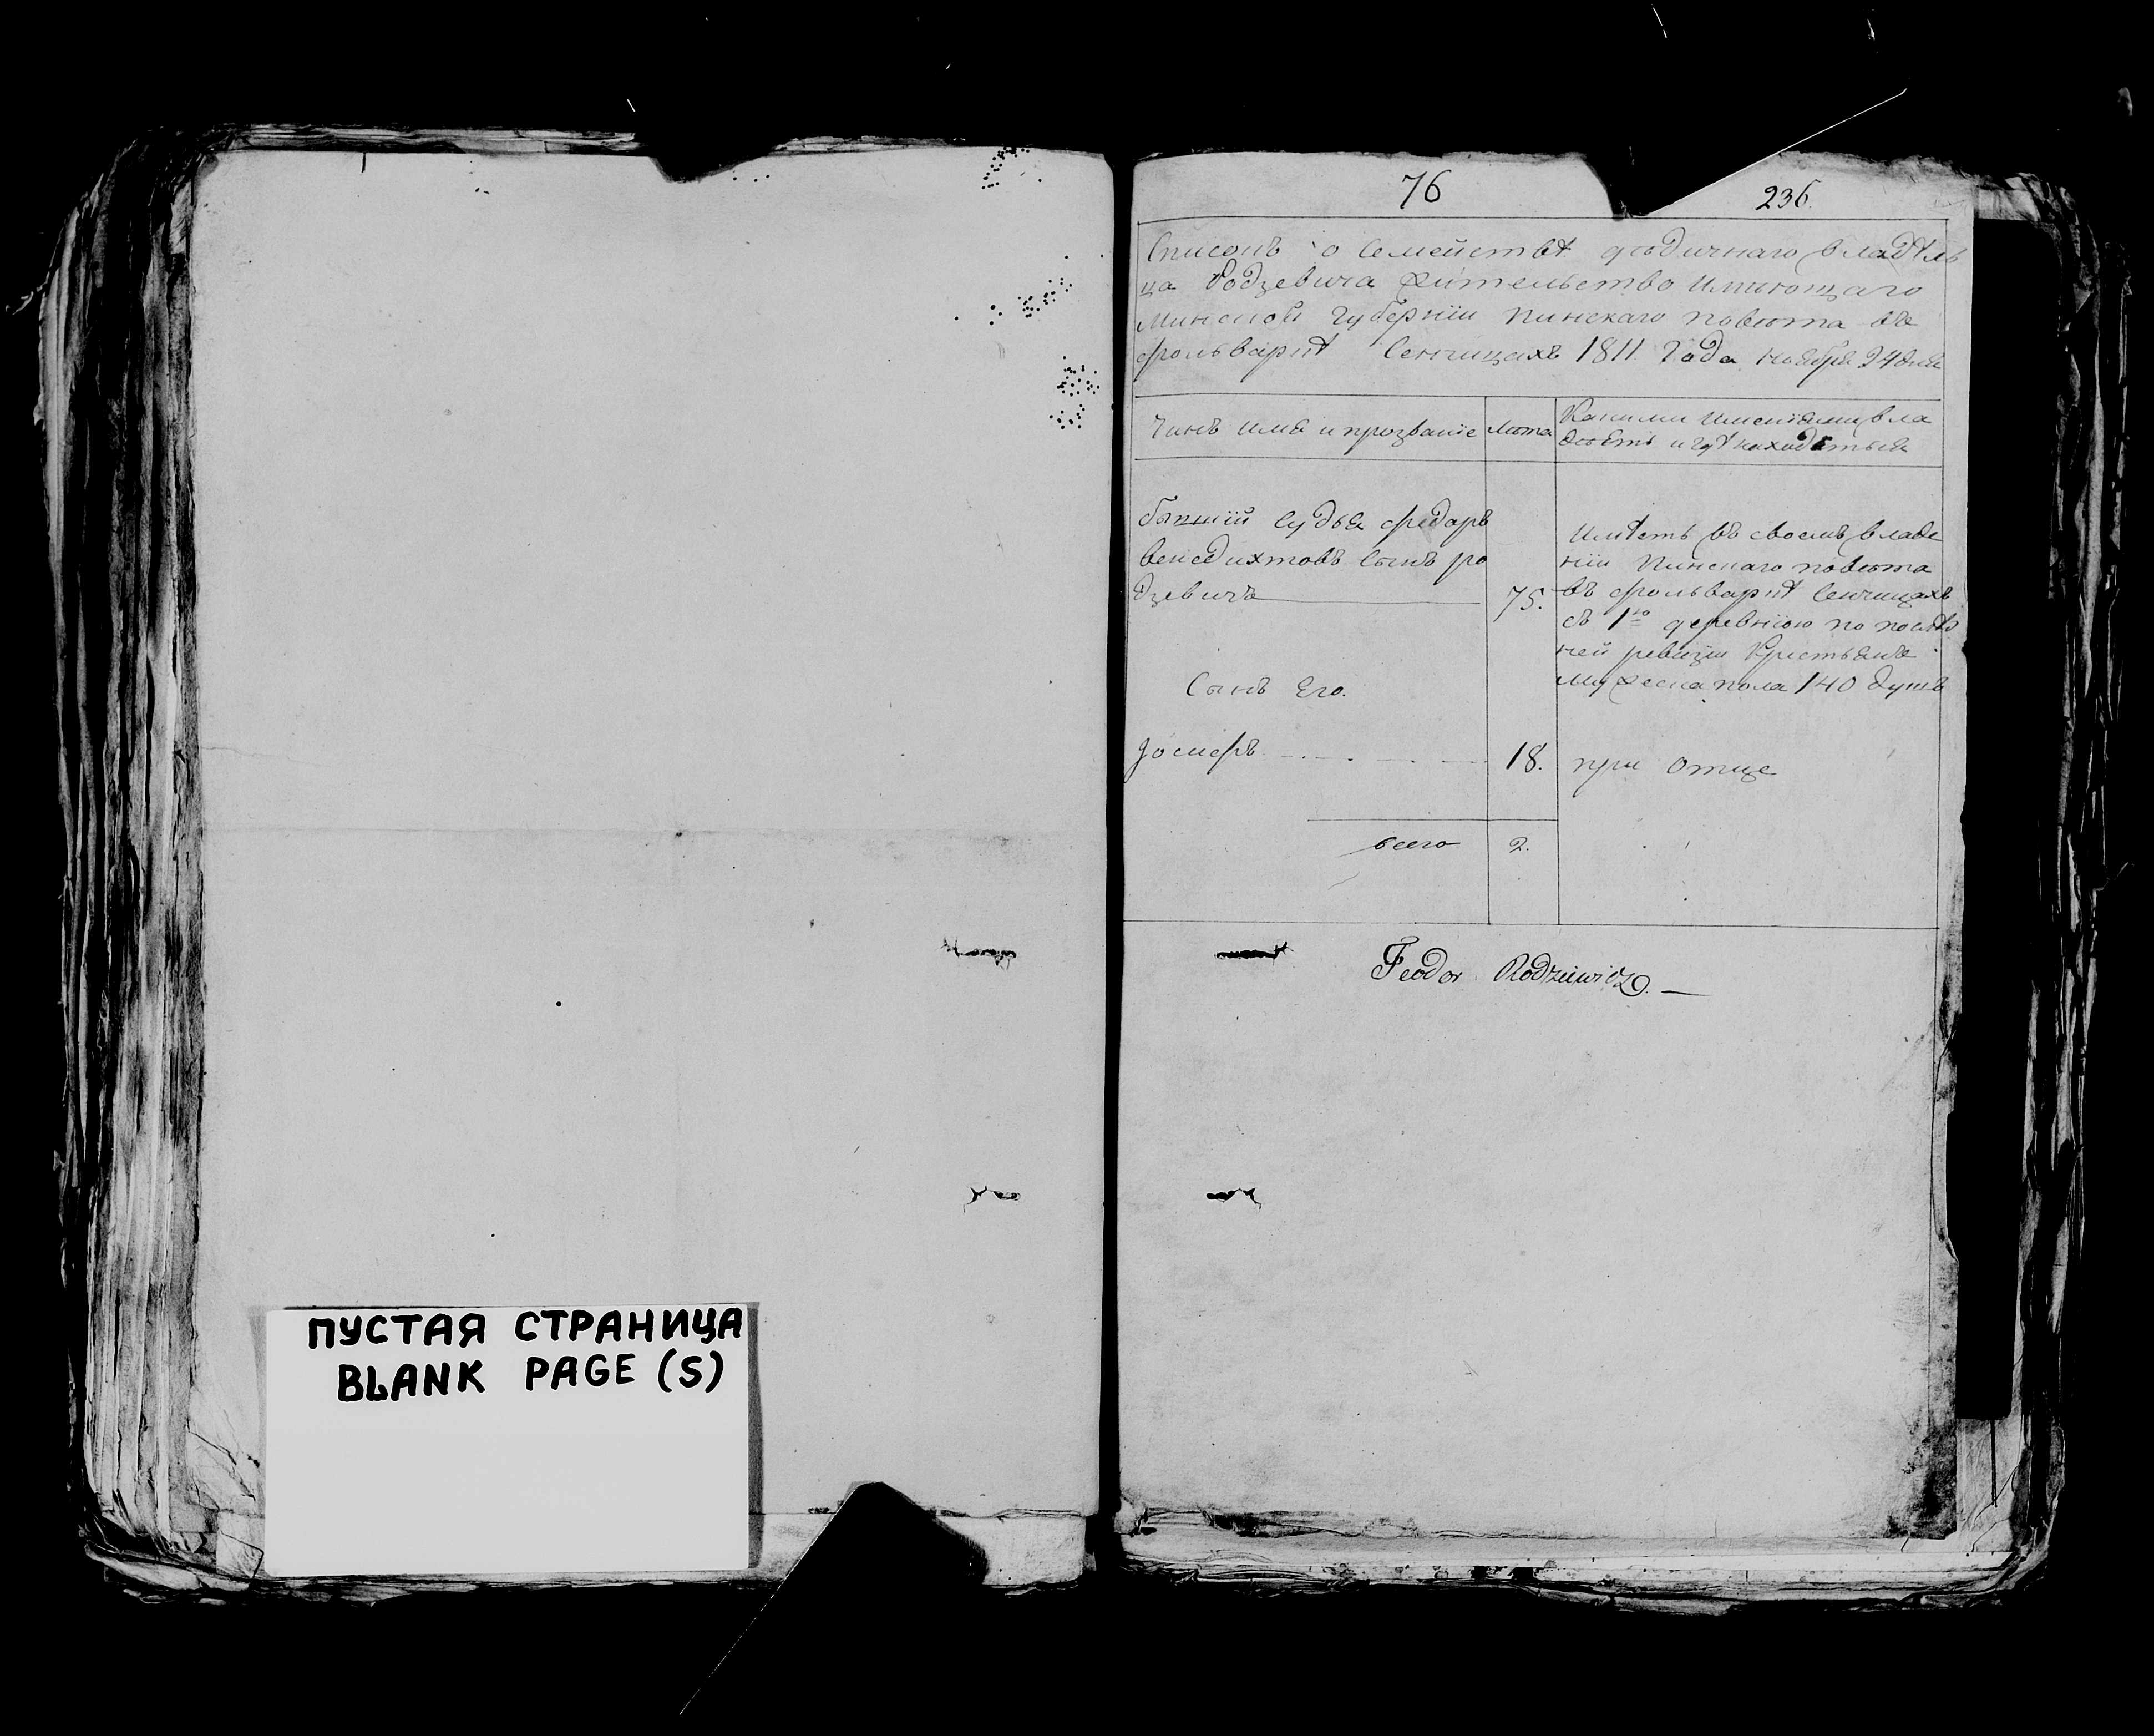 76
236.
Списокъ о Семействѣ дѣдичнаго владѣль
ца Родзевича Жительство Имѣющаго
Минской Губерніи Пинскаго повѣта въ
фольваркѣ Сенчицахъ 1811 Года Ноября 24 дня
Чинъ имя и прозваніе
Лѣта
Какими Имѣніями вла
дѣетъ и гдѣ находяться
бывшій Судья Федоръ
Венедихтовъ Сынъ Ро
дзевичъ
75.
Имѣетъ въ своемъ владе
ніи Пинскаго повѣта
въ фольваркѣ Сенчицахъ
съ 1ю деревнѣю по послѣд
ней ревизіи Крестьянъ
мужеска пола 140 душъ
Сынъ Его.
Іосифъ
18.
при Отце
всего
2.
Feodor Rodziewicz.
ПУСТАЯ СТРАНИЦА
BLANK PAGE (S)